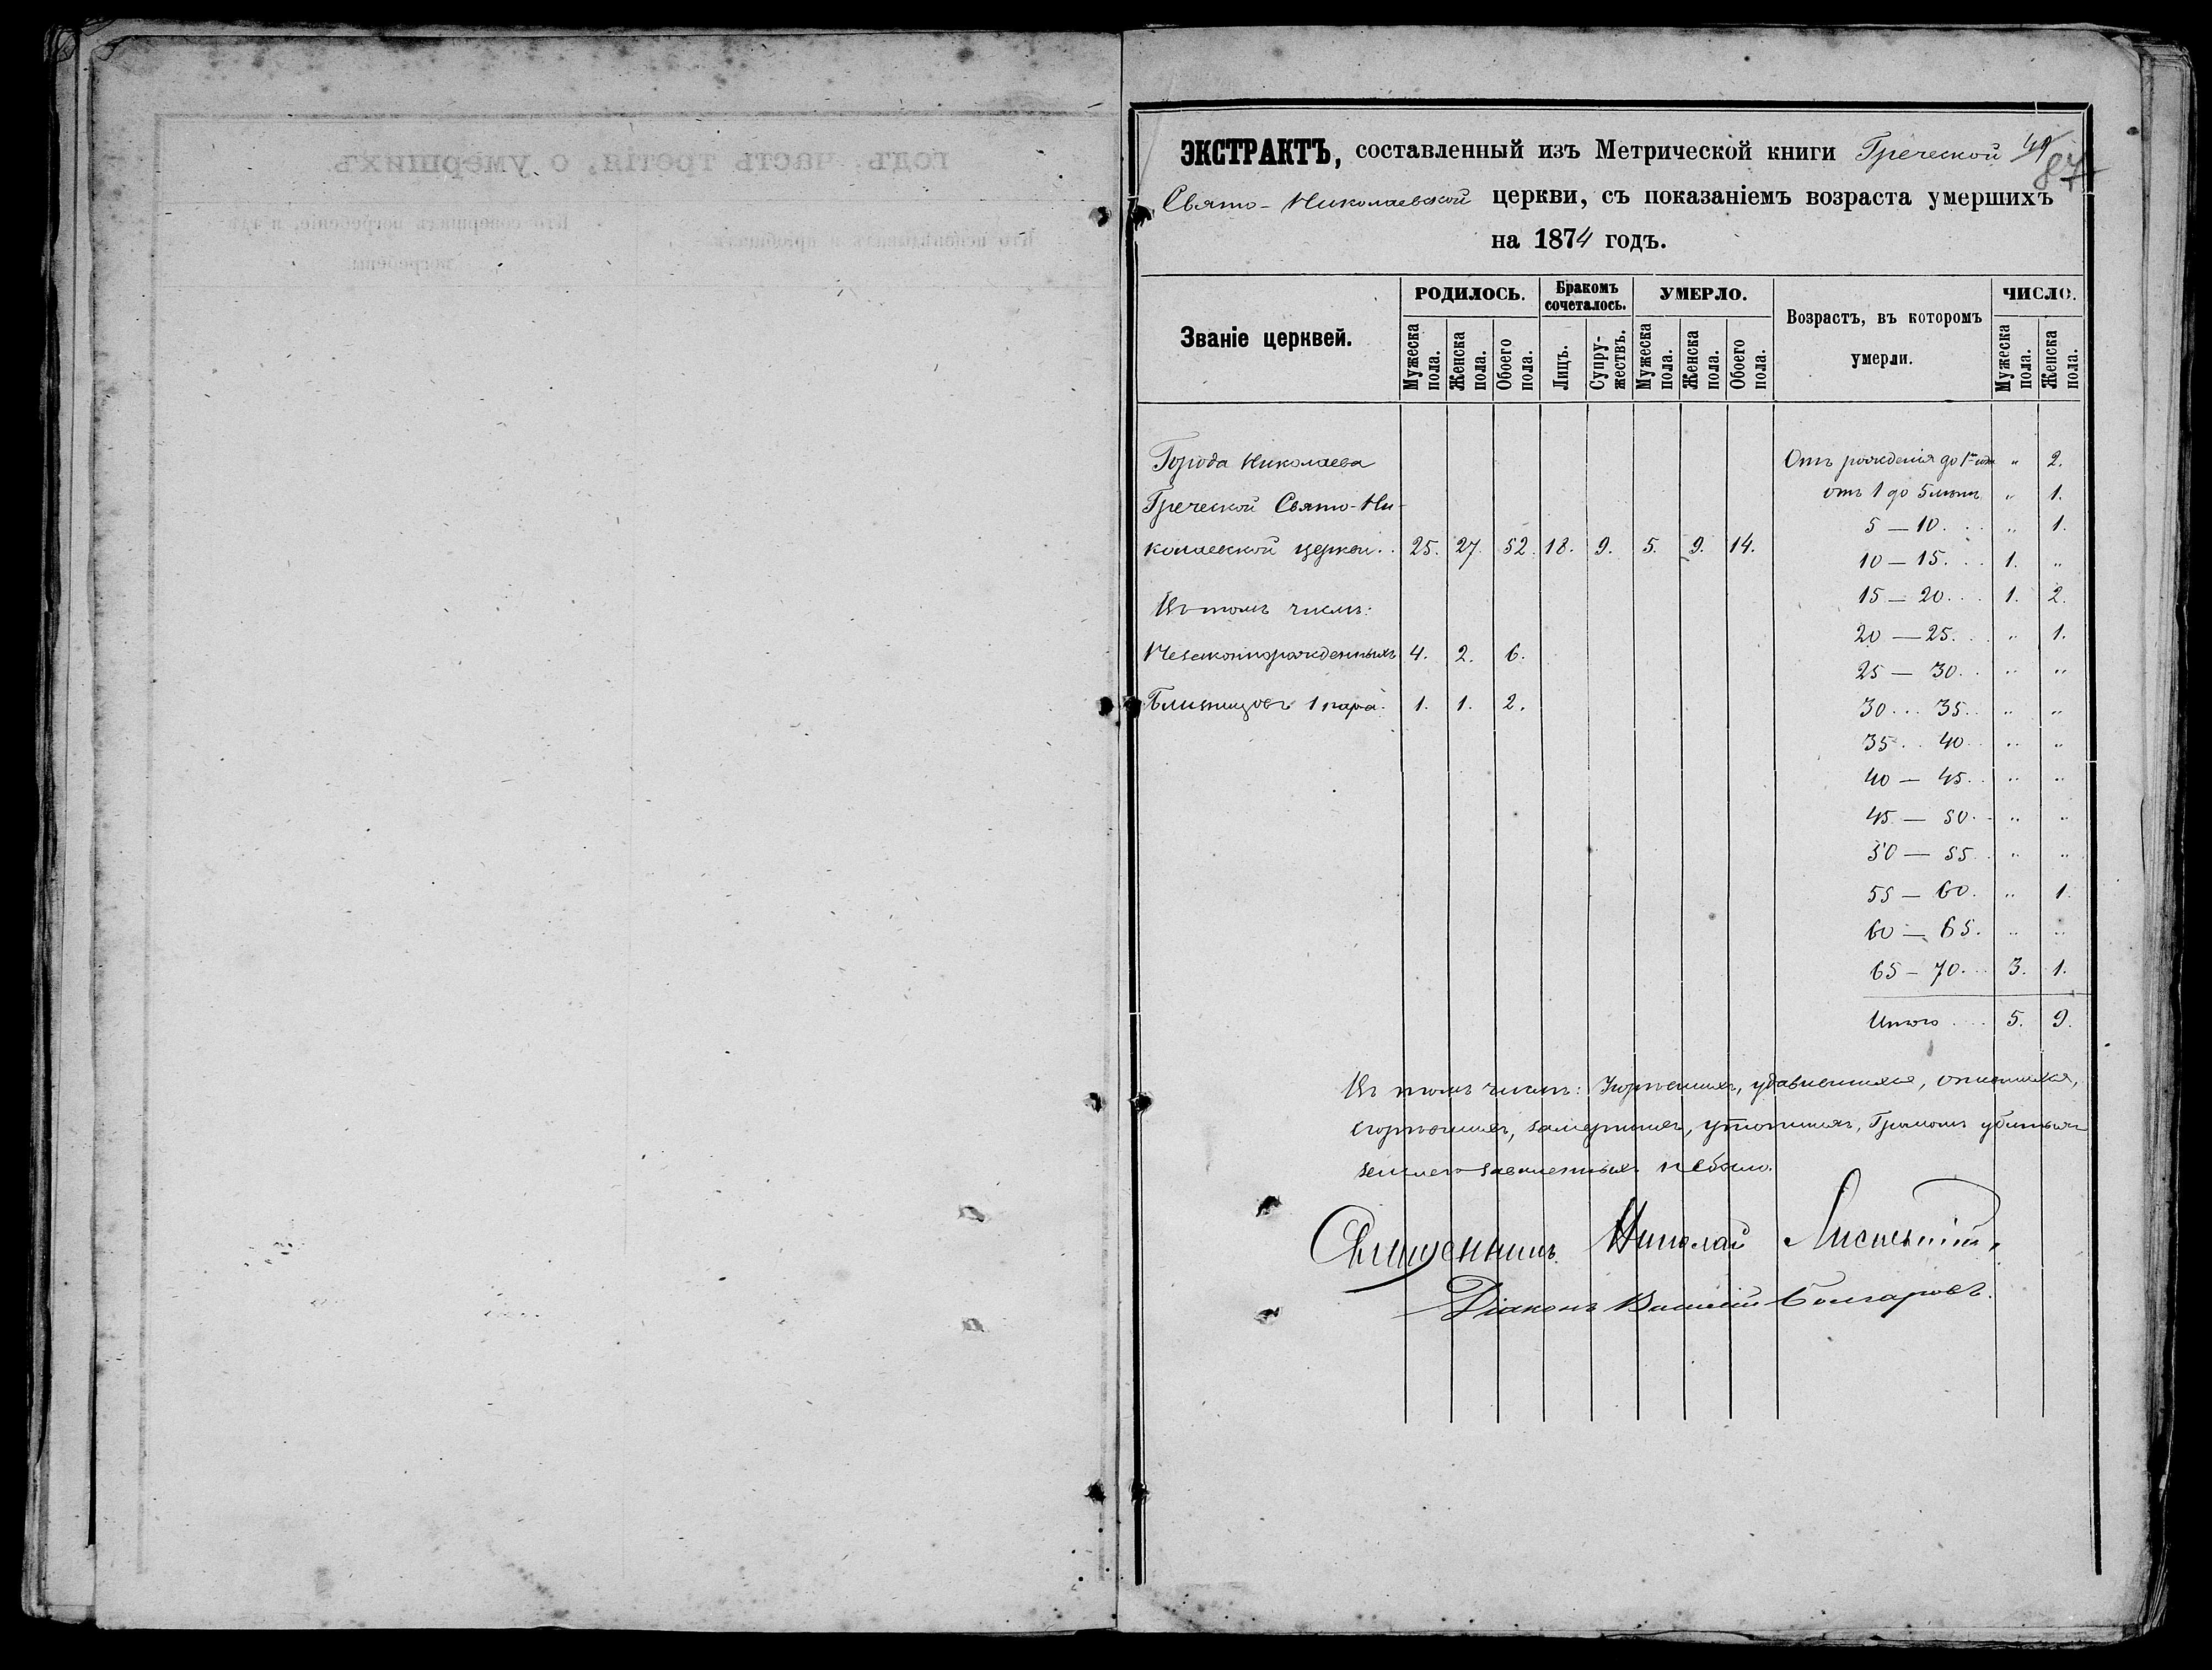 ЭКСТРАКТЪ, составленный изъ Метрической книги Греческой 49
87
Свято-Николаевской церкви, съ показаніемъ возраста умершихъ
на 1874 годъ.
Званіе церквей.
РОДИЛОСЬ.
Бракомъ сочеталось.
УМЕРЛО.
Возрастъ, въ которомъ умерли.
ЧИСЛО.
Мужеска пола.
Женска пола.
Обоего пола.
Лицъ.
Супружествъ.
Мужеска пола.
Женска пола.
Обоего пола.
Мужеска пола.
Женска пола.
Города Николаева
Греческой Свято-Ни-
колаевской церкви.. 25. 27. 52. 18. 9. 5. 9. 14.
Въ томъ числѣ:
Незаконнорожденныхъ 4. 2. 6.
Близнецовъ 1 пара. 1. 1. 2.
Отъ рожденія до 1го года " 2.
отъ 1 до 5 лѣтъ " 1.
5 — 10. . . " 1.
10 — 15. . . 1. "
15 — 20. . . 1. 2.
20 — 25. . " 1.
25 — 30. . " "
30 . . . 35. . " "
35 . . 40. . " "
40 — 45. . " "
45 — 50. . " "
50 — 55. . " "
55 — 60. " 1.
60 — 65. " "
65 — 70. . . 3. 1.
Итого . . . . 5. 9.
Въ томъ числѣ: удавившихся,
сгорѣвшихъ, замерзшихъ, утопшихъ, Громомъ убитыхъ
землею заваленныхъ небыло.
Священникъ Николай
Діаконъ Василій Болгаровъ.
годъ, часть третія, о умершихъ.
Кто исповѣдывалъ и пріобщалъ.
Кто совершалъ погребеніе, и гдѣ погребены.